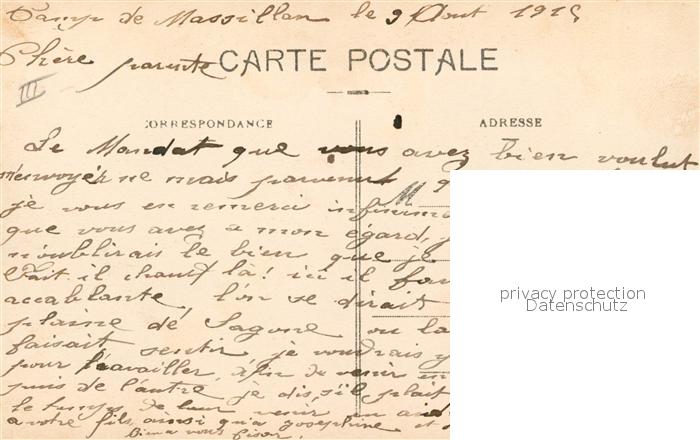 Camp de Massillan le 9 Aout 1915
Chère parente
CARTE POSTALE
III
CORRESPONDANCE
ADRESSE
Le Mandat que vous avez bien voulut
m'envoyér ne mais parvenut
M
je vous en remerci infiniment
que vous avez a mon égard, j
n'oublirais le bien que je
Fait il chaud la! ici il fau
accablante, l'on se dirait
plaine de Sagone ou la
faisait sentir je voudrais y
pour travailler, afin de venir
puis de l'autre je dis, s'il plait
le temps de leur venir en aid
a votre fils, ainsi qu'a Joséphine et
privacy protection
Datenschutz